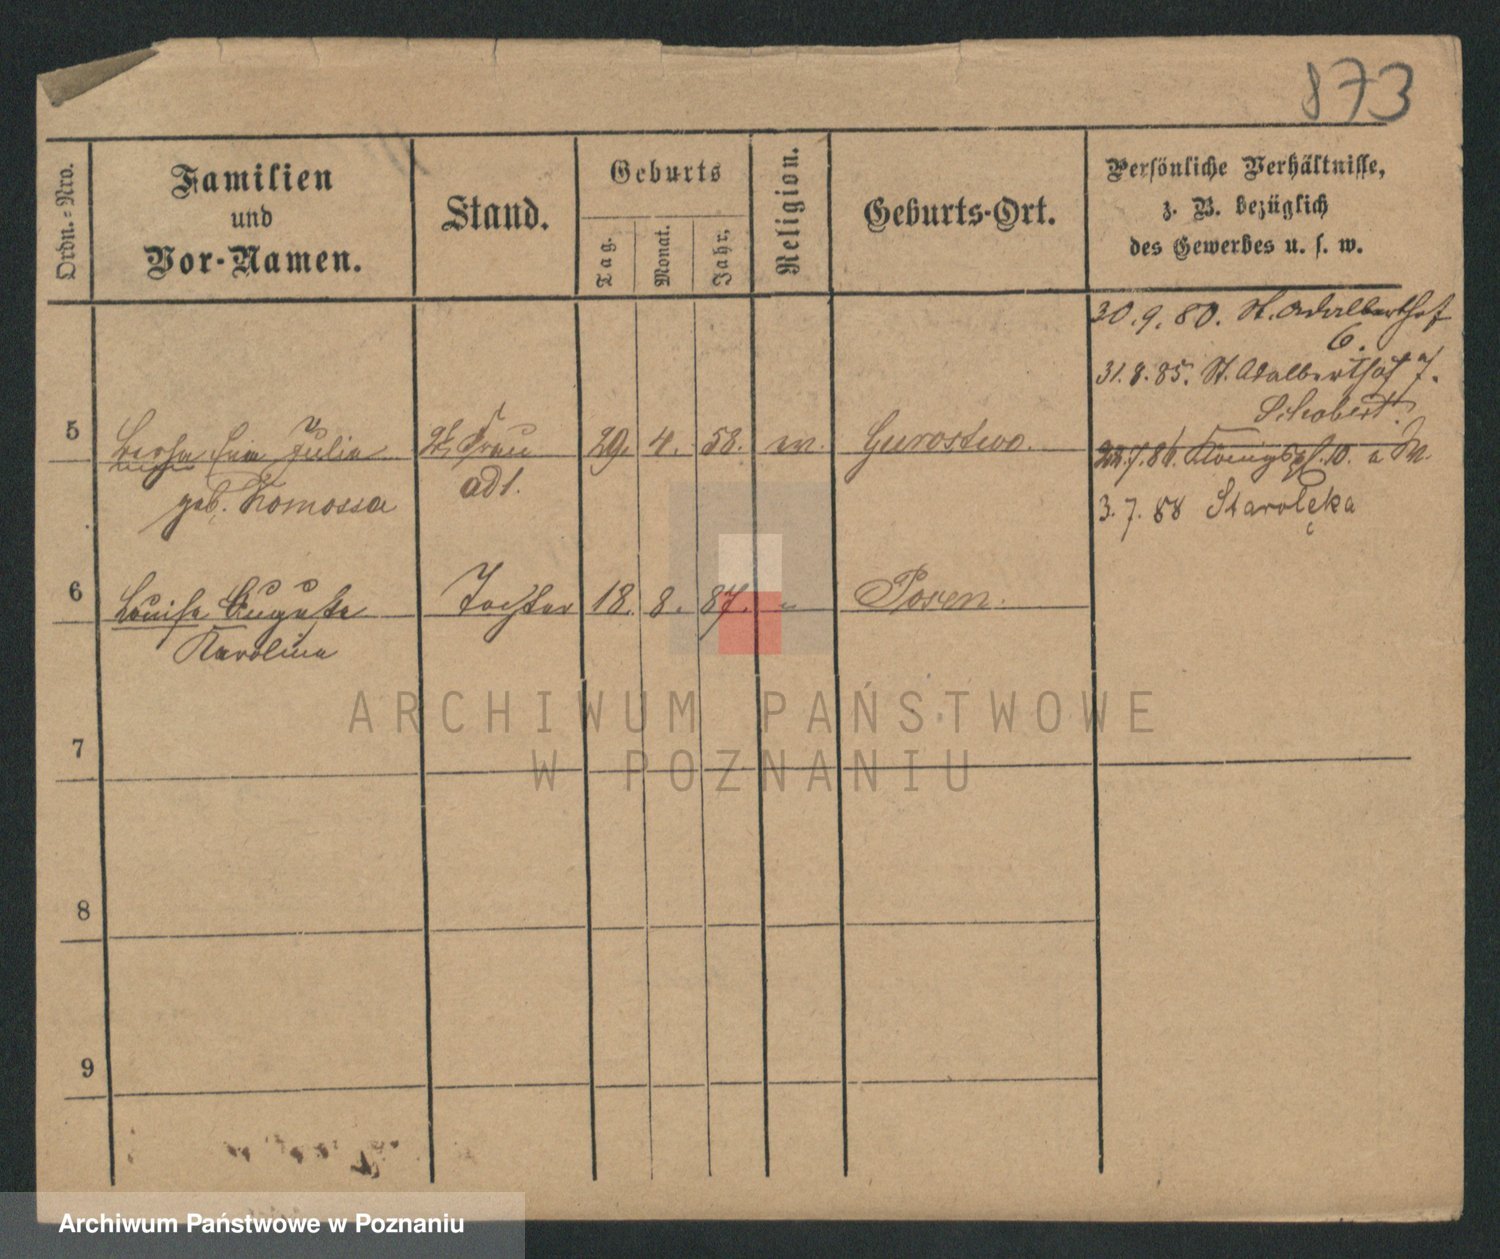 873
Ordn.-Nro.
Familien
und
Vor-Namen.
Stand.
Geburts
Tag.
Monat.
Jahr.
Religion.
Geburts-Ort.
Persönliche Verhältnisse,
z. B. bezüglich
des Gewerbes u. s. w.
30.9.80. St. Adalberthof
6.
31.8.85. St. Adalberthof 7.
Schobert
5 Julie 2t Frau 29. 4. 58. Gurostwo.
geb. Komossa ad 1.
.7.86. Königspl. 10. a M.
3.7.88 Starolęka
6 Louise Auguste Tochter 18. 8. 87. " Posen.
Karoline
7
8
9
ARCHIWUM PAŃSTWOWE
W POZNANIU
Archiwum Państwowe w Poznaniu